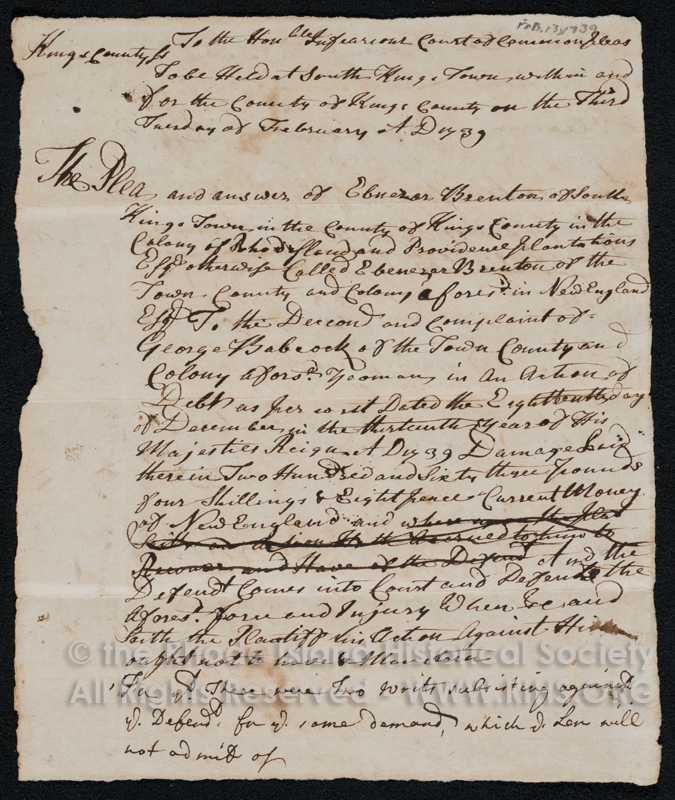 Feb. 13, 1739
To the Honble Infeariour Court of Common Pleas
Kings County Ss
To be Held at South Kings Town within and
for the County of Kings County on the Third
Tuesday of February A D 1739
The Plea and answer of Ebenezer Brenton of South
Kings Town in the County of Kings County in the
Colony of Rhode Island and Providence Plantations
Esqr otherwise Called Ebenezer Brenton of the
Town County and Colony aforesd in New England
Esqr To the and Complaint of
George Babcock of the Town County and
Colony aforsd Yeoman in An Action of
Debt as per writ Dated the Eighteenth day
of December in the thirteenth year of His
Majesties Reign A D 1739 Damage Laid
therein Two Hundred and Sixty three pounds
four Shillings & Eight pence Current Money
of New England and where the
an action to him to
Recover and Have of the Defendt And the
Defendt Comes into Court and Defends the
aforesd force and Injury When &c and
saith the Plantiff his Action Against Him
ought not to have & Maintain
For yt There were Two writs subsisting against
ye Defendt for ye same demand, which ye Law will
not admitt of
© the Rhode Island Historical Society
All Rights Reserved - WWW.RIHS.ORG